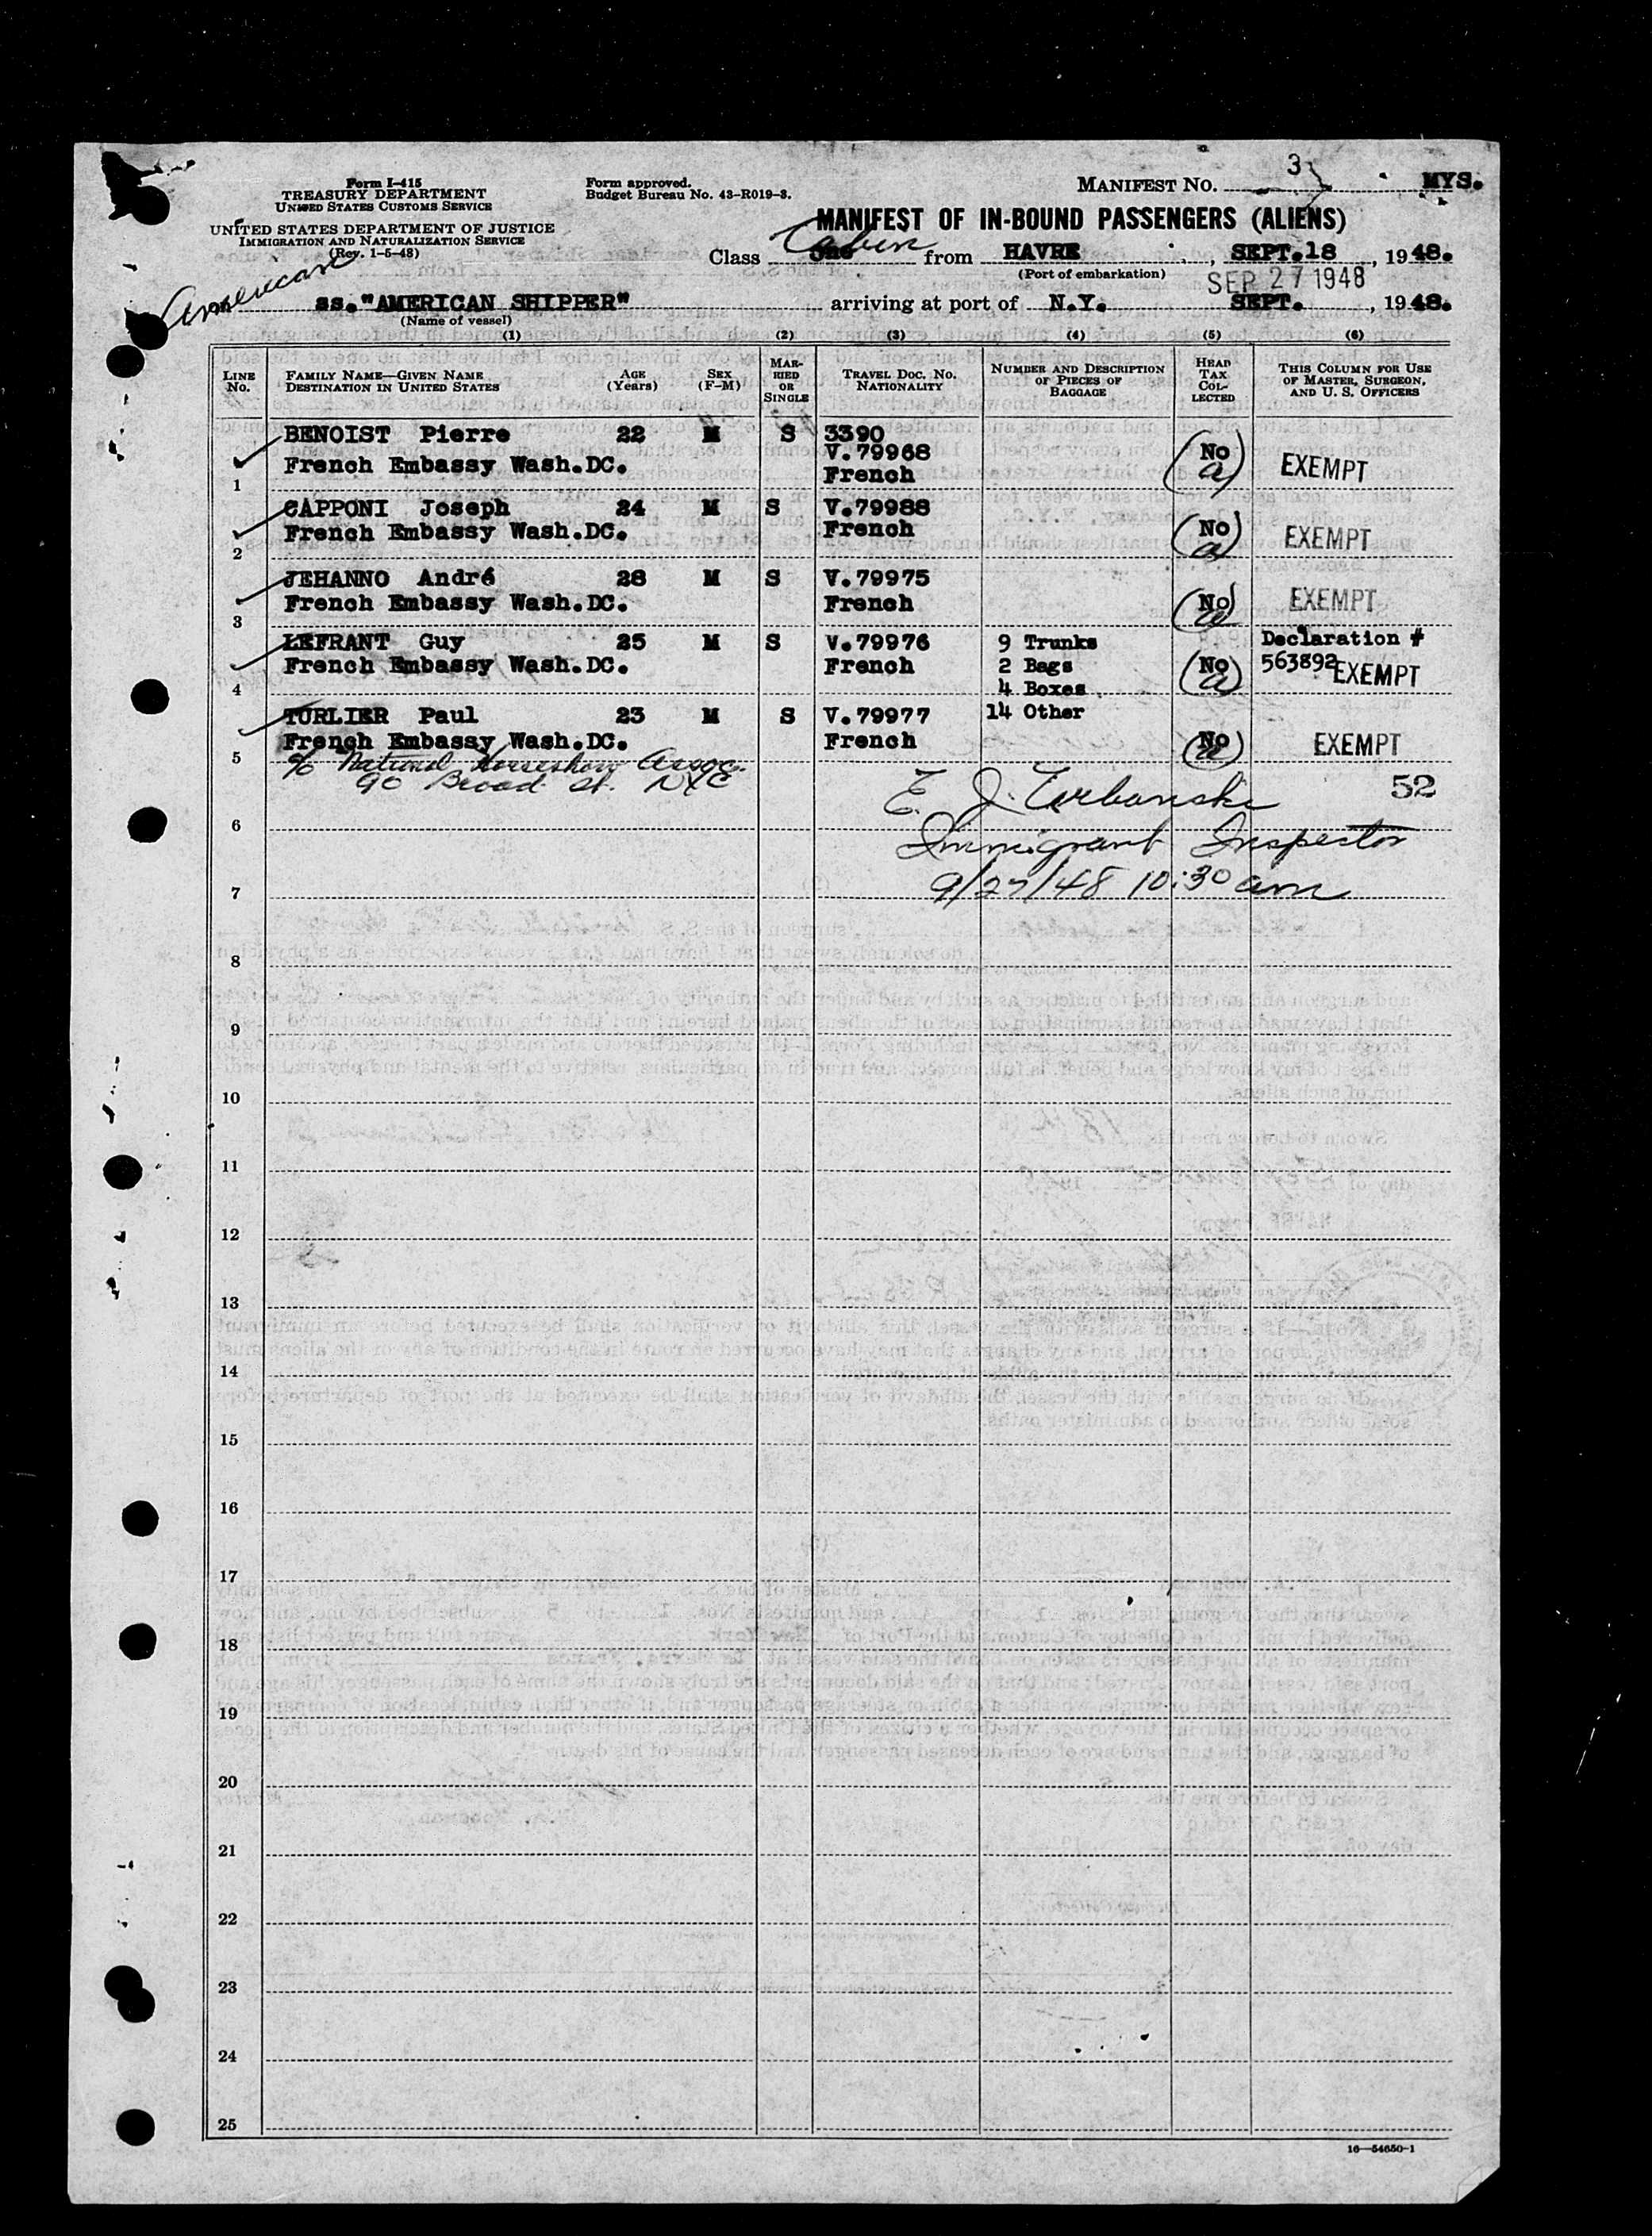 Form I-415
TREASURY DEPARTMENT
UNITED STATES CUSTOMS SERVICE
UNITED STATES DEPARTMENT OF JUSTICE
IMMIGRATION AND NATURALIZATION SERVICE
(Rev. 1-5-48)
Form approved.
Budget Bureau No. 43-R019-3.
MANIFEST NO. 3 NYS.
MANIFEST OF IN-BOUND PASSENGERS (ALIENS)
Class Cabin One from HAVRE, SEPT.18, 1948.
(Port of embarkation)
SEP 27 1948
American
on ss."AMERICAN SHIPPER" arriving at port of N.Y. SEPT., 1948.
(Name of vessel)
(1) (2) (3) (4) (5) (6)
LINE No.
FAMILY NAME—GIVEN NAME
DESTINATION IN UNITED STATES
AGE (Years)
SEX (F-M)
MARRIED OR SINGLE
TRAVEL DOC. NO. NATIONALITY
NUMBER AND DESCRIPTION OF PIECES OF BAGGAGE
HEAD TAX COLLECTED
THIS COLUMN FOR USE OF MASTER, SURGEON, AND U. S. OFFICERS
BENOIST Pierre 22 M S 3390
V.79968
1 French Embassy Wash.DC. French No a EXEMPT
CAPPONI Joseph 24 M S V.79988
2 French Embassy Wash.DC. French No a EXEMPT
JEHANNO André 28 M S V.79975
3 French Embassy Wash.DC. French No a EXEMPT
LEFRANT Guy 25 M S V.79976 9 Trunks Declaration #
French Embassy Wash.DC. French 2 Bags No a 563892 EXEMPT
4 4 Boxes
TURLIER Paul 23 M S V.79977 14 Other
5 French Embassy Wash.DC. French No a EXEMPT
c/o National Horseshow Assoc.
90 Broad St. NYC
52
E. J. Urbanski
6
Immigrant Inspector
7
9/27/48 10:30 am
8
9
10
11
12
13
14
15
16
17
18
19
20
21
22
23
24
25
16—54650-1